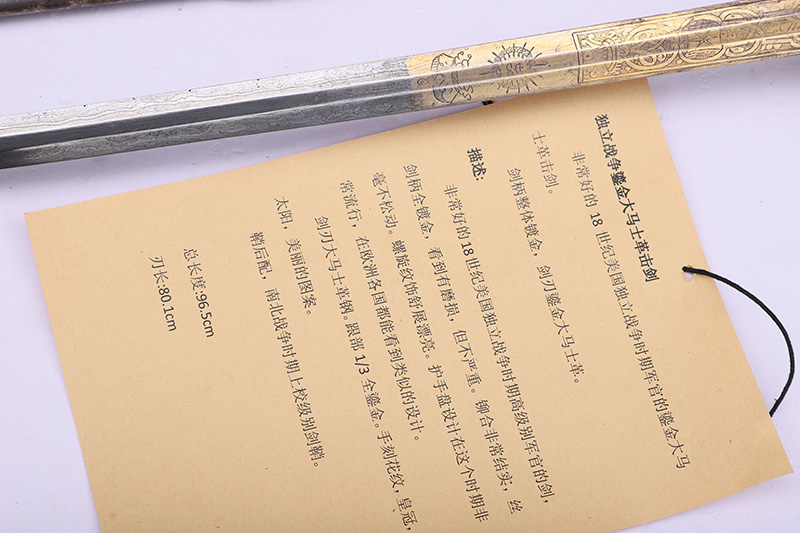 独立战争鎏金大马士革击剑
非常好的 18 世纪美国独立战争时期军官的鎏金大马
士革击剑。
剑柄整体镀金，剑刃鎏金大马士革。
描述:
非常好的 18 世纪美国独立战争时期高级别军官的剑，
剑柄全镀金，看到有磨损，但不严重。铆合非常结实，丝
毫不松动。螺旋纹饰舒展漂亮。护手盘设计在这个时期非
常流行，在欧洲各国都能看到类似的设计。
剑刃大马士革钢。跟部 1/3 全鎏金。手刻花纹，皇冠，
太阳，美丽的图案。
鞘后配，南北战争时期上校级别剑鞘。
总长度:96.5cm
刃长:80.1cm